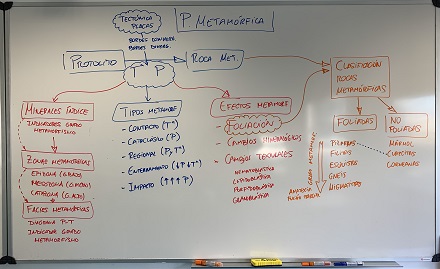 P. METAMÓRFICA
TECTÓNICA
PLACAS
BORDES CONVERG.
BORDES DIVERG.
PROTOLITO
T P
ROCA MET.
CLASIFICACIÓN
ROCAS
METAMÓRFICAS
MINERALES ÍNDICE
INDICADORES GRADO
METAMORFISMO
ZONAS METAMÓRFICAS
EPIZONA (G.BAJO)
MESOZONA (G.MEDIO)
CATAZONA (G.ALTO)
FACIES METAMÓRFICAS
DIAGRAMA P-T
INDICADOR GRADO
METAMORFISMO
TIPOS METAMORF.
- CONTACTO (Tª)
- CATACLÁSTICO (P)
- REGIONAL (P, Tª)
- ENTERRAMIENTO (↓P ↓Tª)
- IMPACTO (↑↑↑ P)
EFECTOS METAMORF.
FOLIACIÓN
- CAMBIOS MINERALÓGICOS
- CAMBIOS TEXTURALES
NEMATOBLÁSTICA
LEPIDOBLÁSTICA
PORFIDOBLÁSTICA
GRANOBLÁSTICA
FOLIADAS
GRADO METAMORF.
PIZARRAS
FILITAS
ESQUISTOS
GNEIS
MIGMATITAS
ANATEXIA
FUSIÓN PARCIAL
NO
FOLIADAS
MÁRMOL
CUARCITAS
CORNEANAS